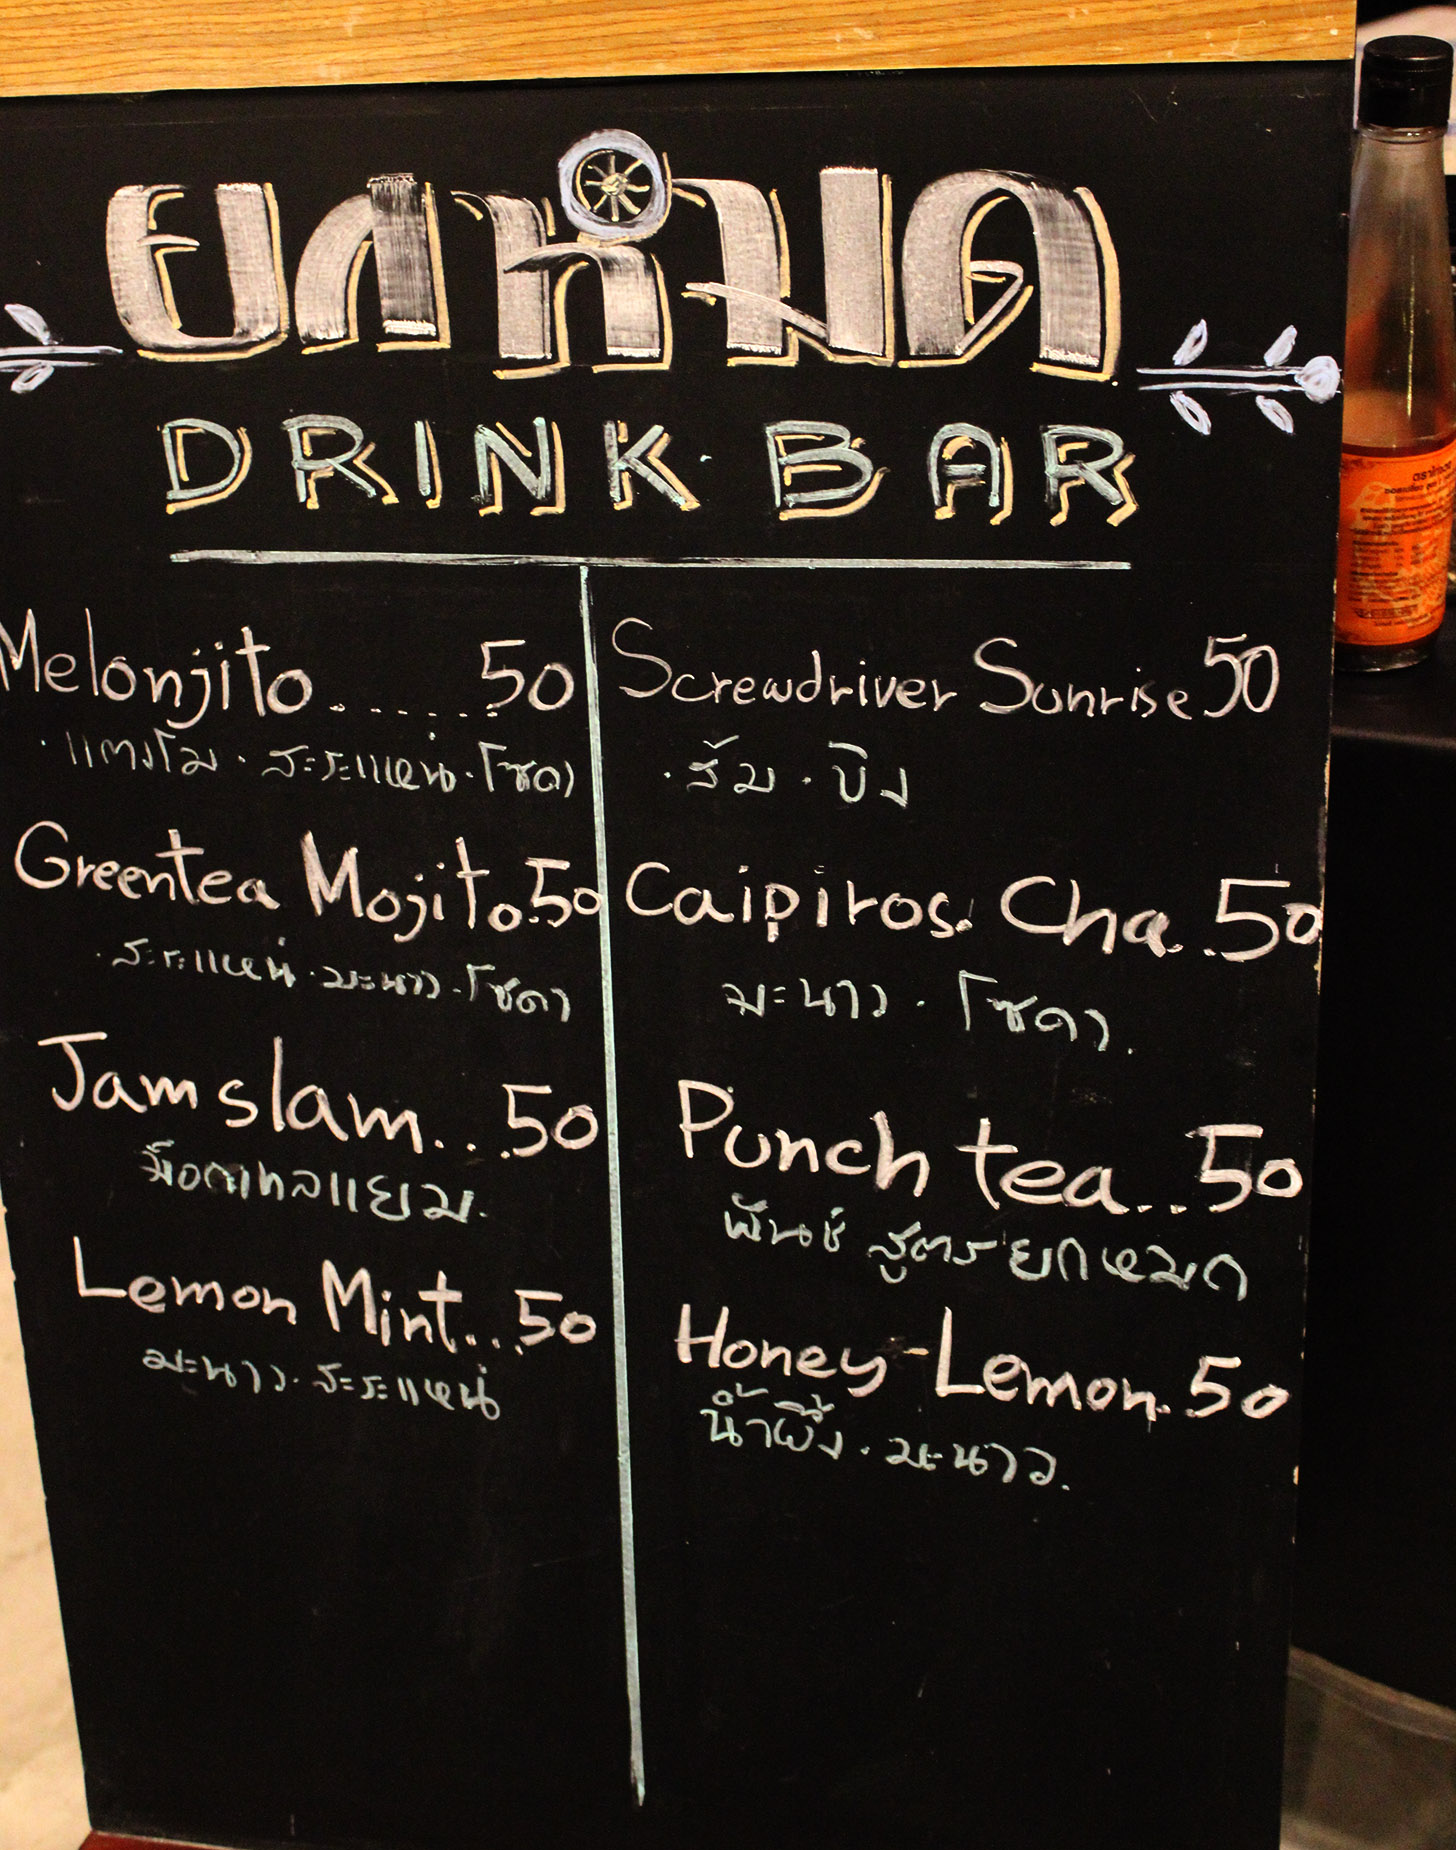 ยกหมด
DRINK BAR
Melonjito......50
·แตงโม·สะระแหน่·โซดา
Greentea Mojito.50
·สะระแหน่·มะนาว·โซดา
Jam slam...50
ม็อคเทลแยม.
Lemon Mint...50
มะนาว·สะระแหน่
Screwdriver Sunrise 50
·ส้ม·ขิง
Caipiros. Cha..50
มะนาว·โซดา.
Punch tea...50
พันช์ สูตรยกหมด
Honey-Lemon.50
น้ำผึ้ง·มะนาว.